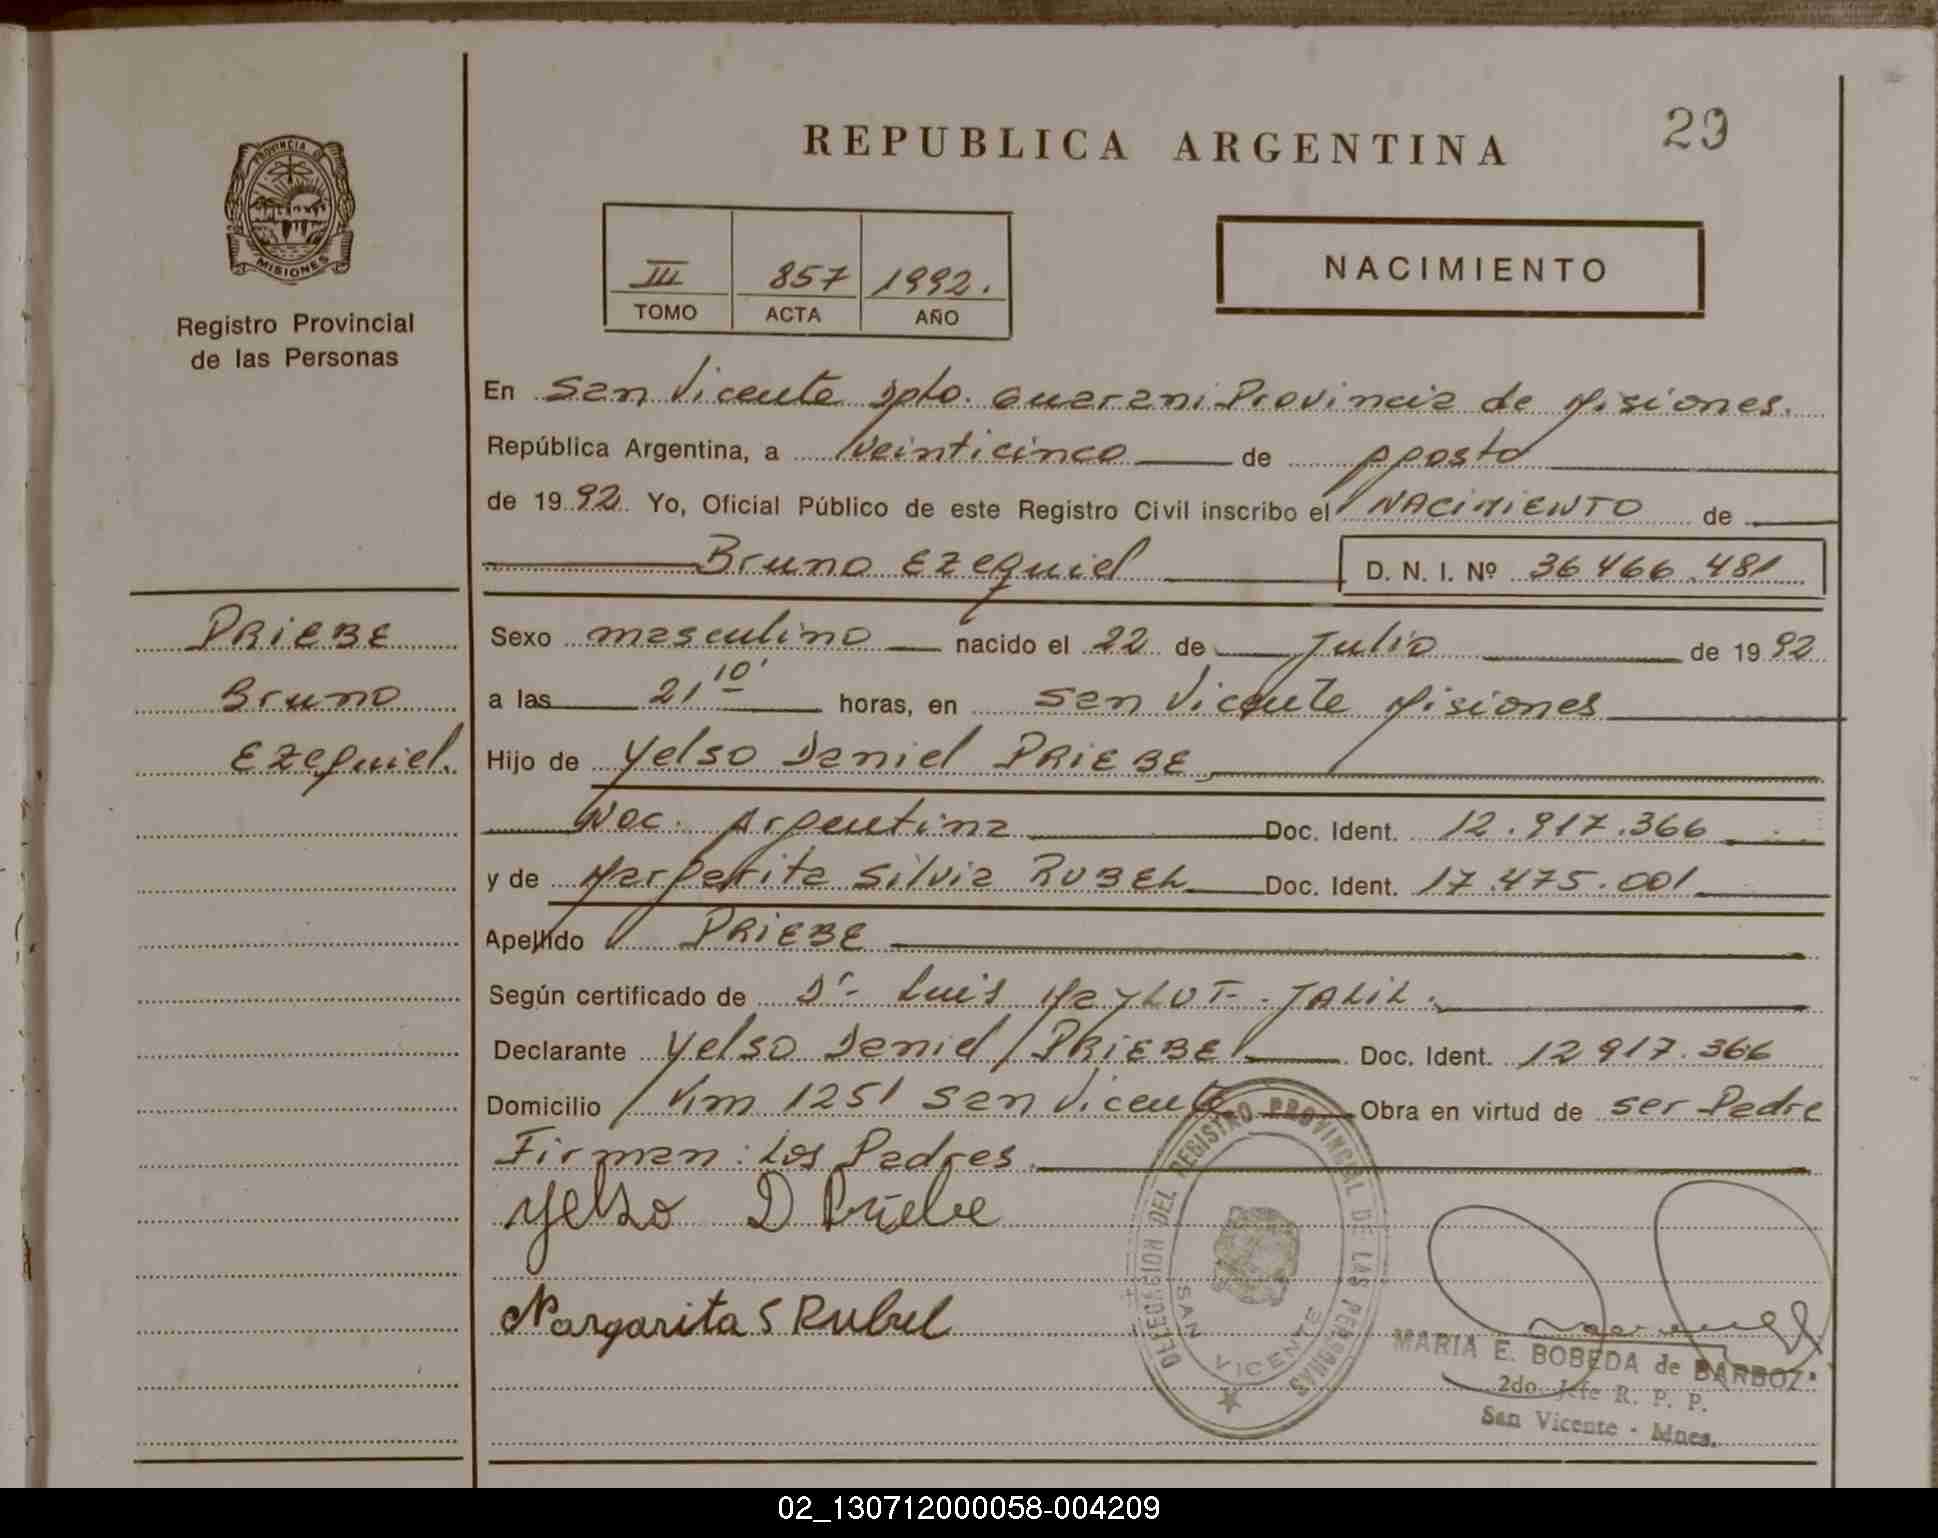 REPUBLICA ARGENTINA
29
PROVINCIA DE
MISIONES
Registro Provincial
de las Personas
III 857 1992.
TOMO ACTA AÑO
NACIMIENTO
En San Vicente Dpto. Guarani Provincia de Misiones.
República Argentina, a Veinticinco de Agosto
de 1992 Yo, Oficial Público de este Registro Civil inscribo el NACIMIENTO de
Bruno Ezequiel D. N. I. Nº 36 466 481
PRIEBE
Bruno
Ezequiel.
Sexo masculino nacido el 22 de Julio de 1992
a las 21,10' horas, en San Vicente Misiones
Hijo de Yelso Daniel PRIEBE
Nac. Argentina Doc. Ident. 12.917.366
y de Margarita Silvia RUBEL Doc. Ident. 17.475.001
Apellido PRIEBE
Según certificado de Dr- Luis JALIL.
Declarante Yelso Daniel PRIEBE Doc. Ident. 12 917.366
Domicilio Km 1251 San Vicente Obra en virtud de ser Padre
Firman: Los Padres.
Yelso D Priebe
Margarita S Rubel
DELEGACION DEL REGISTRO PROVINCIAL DE LAS PERSONAS
SAN VICENTE
MARIA E. BOBEDA de BARBOZA
2do. Jefe R. P. P.
San Vicente - Mnes.
02_130712000058-004209